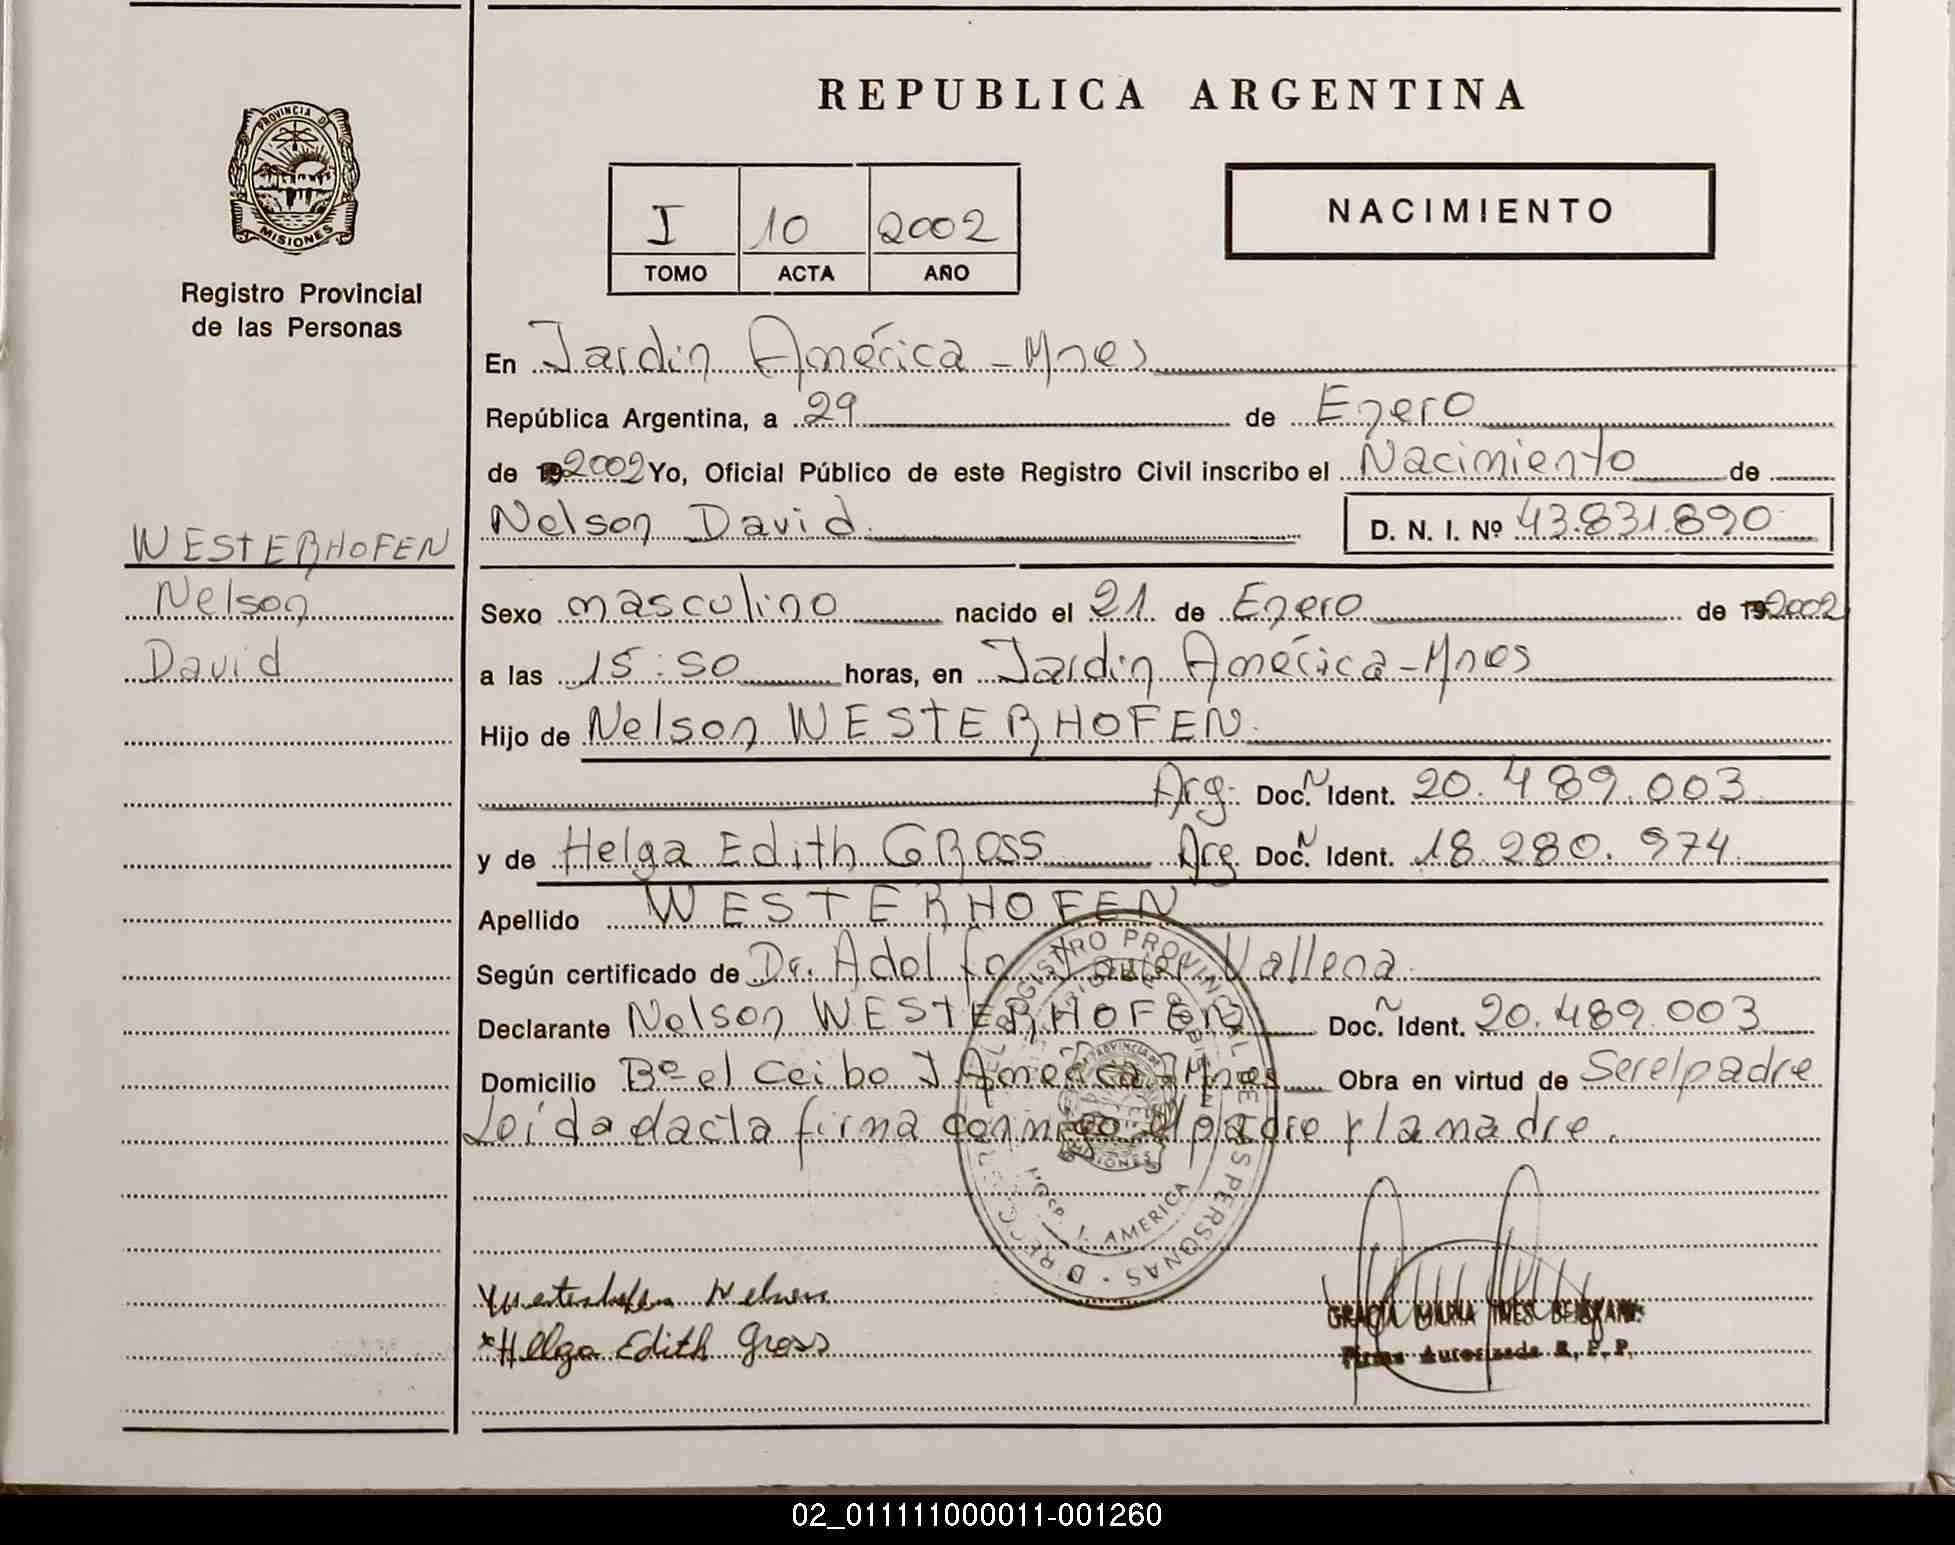 REPUBLICA ARGENTINA
PROVINCIA DE
MISIONES
Registro Provincial
de las Personas
I 10 2002
TOMO ACTA AÑO
NACIMIENTO
En Jardin América - Mnes
República Argentina, a 29 de Enero
de 192002 Yo, Oficial Público de este Registro Civil inscribo el Nacimiento de
Nelson David D. N. I. Nº 43.831.890
WESTERHOFEN
Nelson
David
Sexo masculino nacido el 21 de Enero de 192002
a las 15:50 horas, en Jardin América - Mnes
Hijo de Nelson WESTERHOFEN
Arg. Doc. N Ident. 20.489.003
y de Helga Edith GROSS Arg. Doc. N Ident. 18.280.974
Apellido WESTERHOFEN
Según certificado de Dr. Adolfo Vallena
Declarante Nelson WESTERHOFEN Doc. N Ident. 20.489.003
Domicilio Bº el Ceibo J América - Mnes Obra en virtud de Serelpadre
Leída dacta firma conmigo el padre y la madre.
REGISTRO PROVINCIAL DE LAS PERSONAS
PROVINCIA DE
MISIONES
J. AMERICA
Westerhofen Nelson
*Helga Edith Gross
GRACIA MARIA INES
Firma Autorizada R. P. P.
02_011111000011-001260